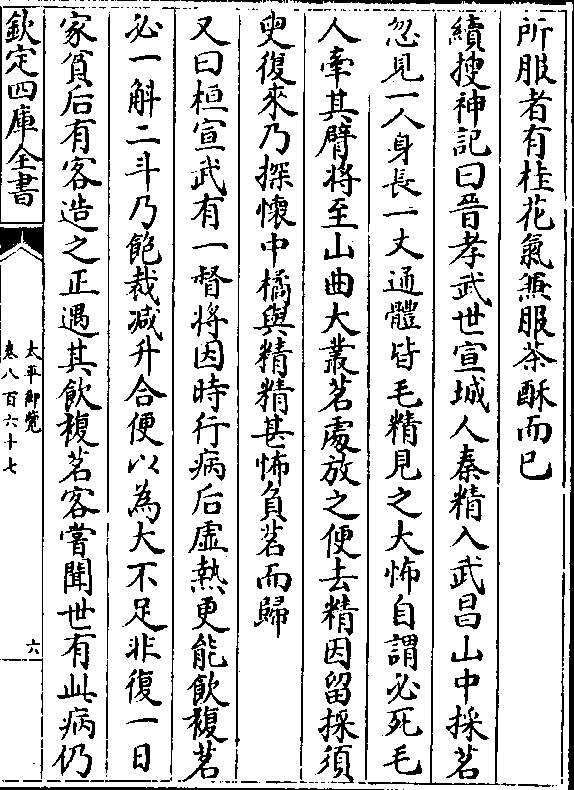 所服者有桂花氣兼服茶酥而已
續搜神記曰晉孝武世宣城人秦精入武昌山中採茗
忽見一人身長一丈通體皆毛精見之大怖自謂必死毛
人牽其臂將至山曲大叢茗處放之便去精因留採須
臾復來乃探懷中橘與精精甚怖負茗而歸
又曰桓宣武有一督將因時行病后虛熱更能飲複茗
必一斛二斗乃飽裁減升合便以為大不足非復一日
家貧后有客造之正遇其飲複茗客嘗聞世有此病仍
欽定四庫全書
太平御覽
卷八百六十七
六